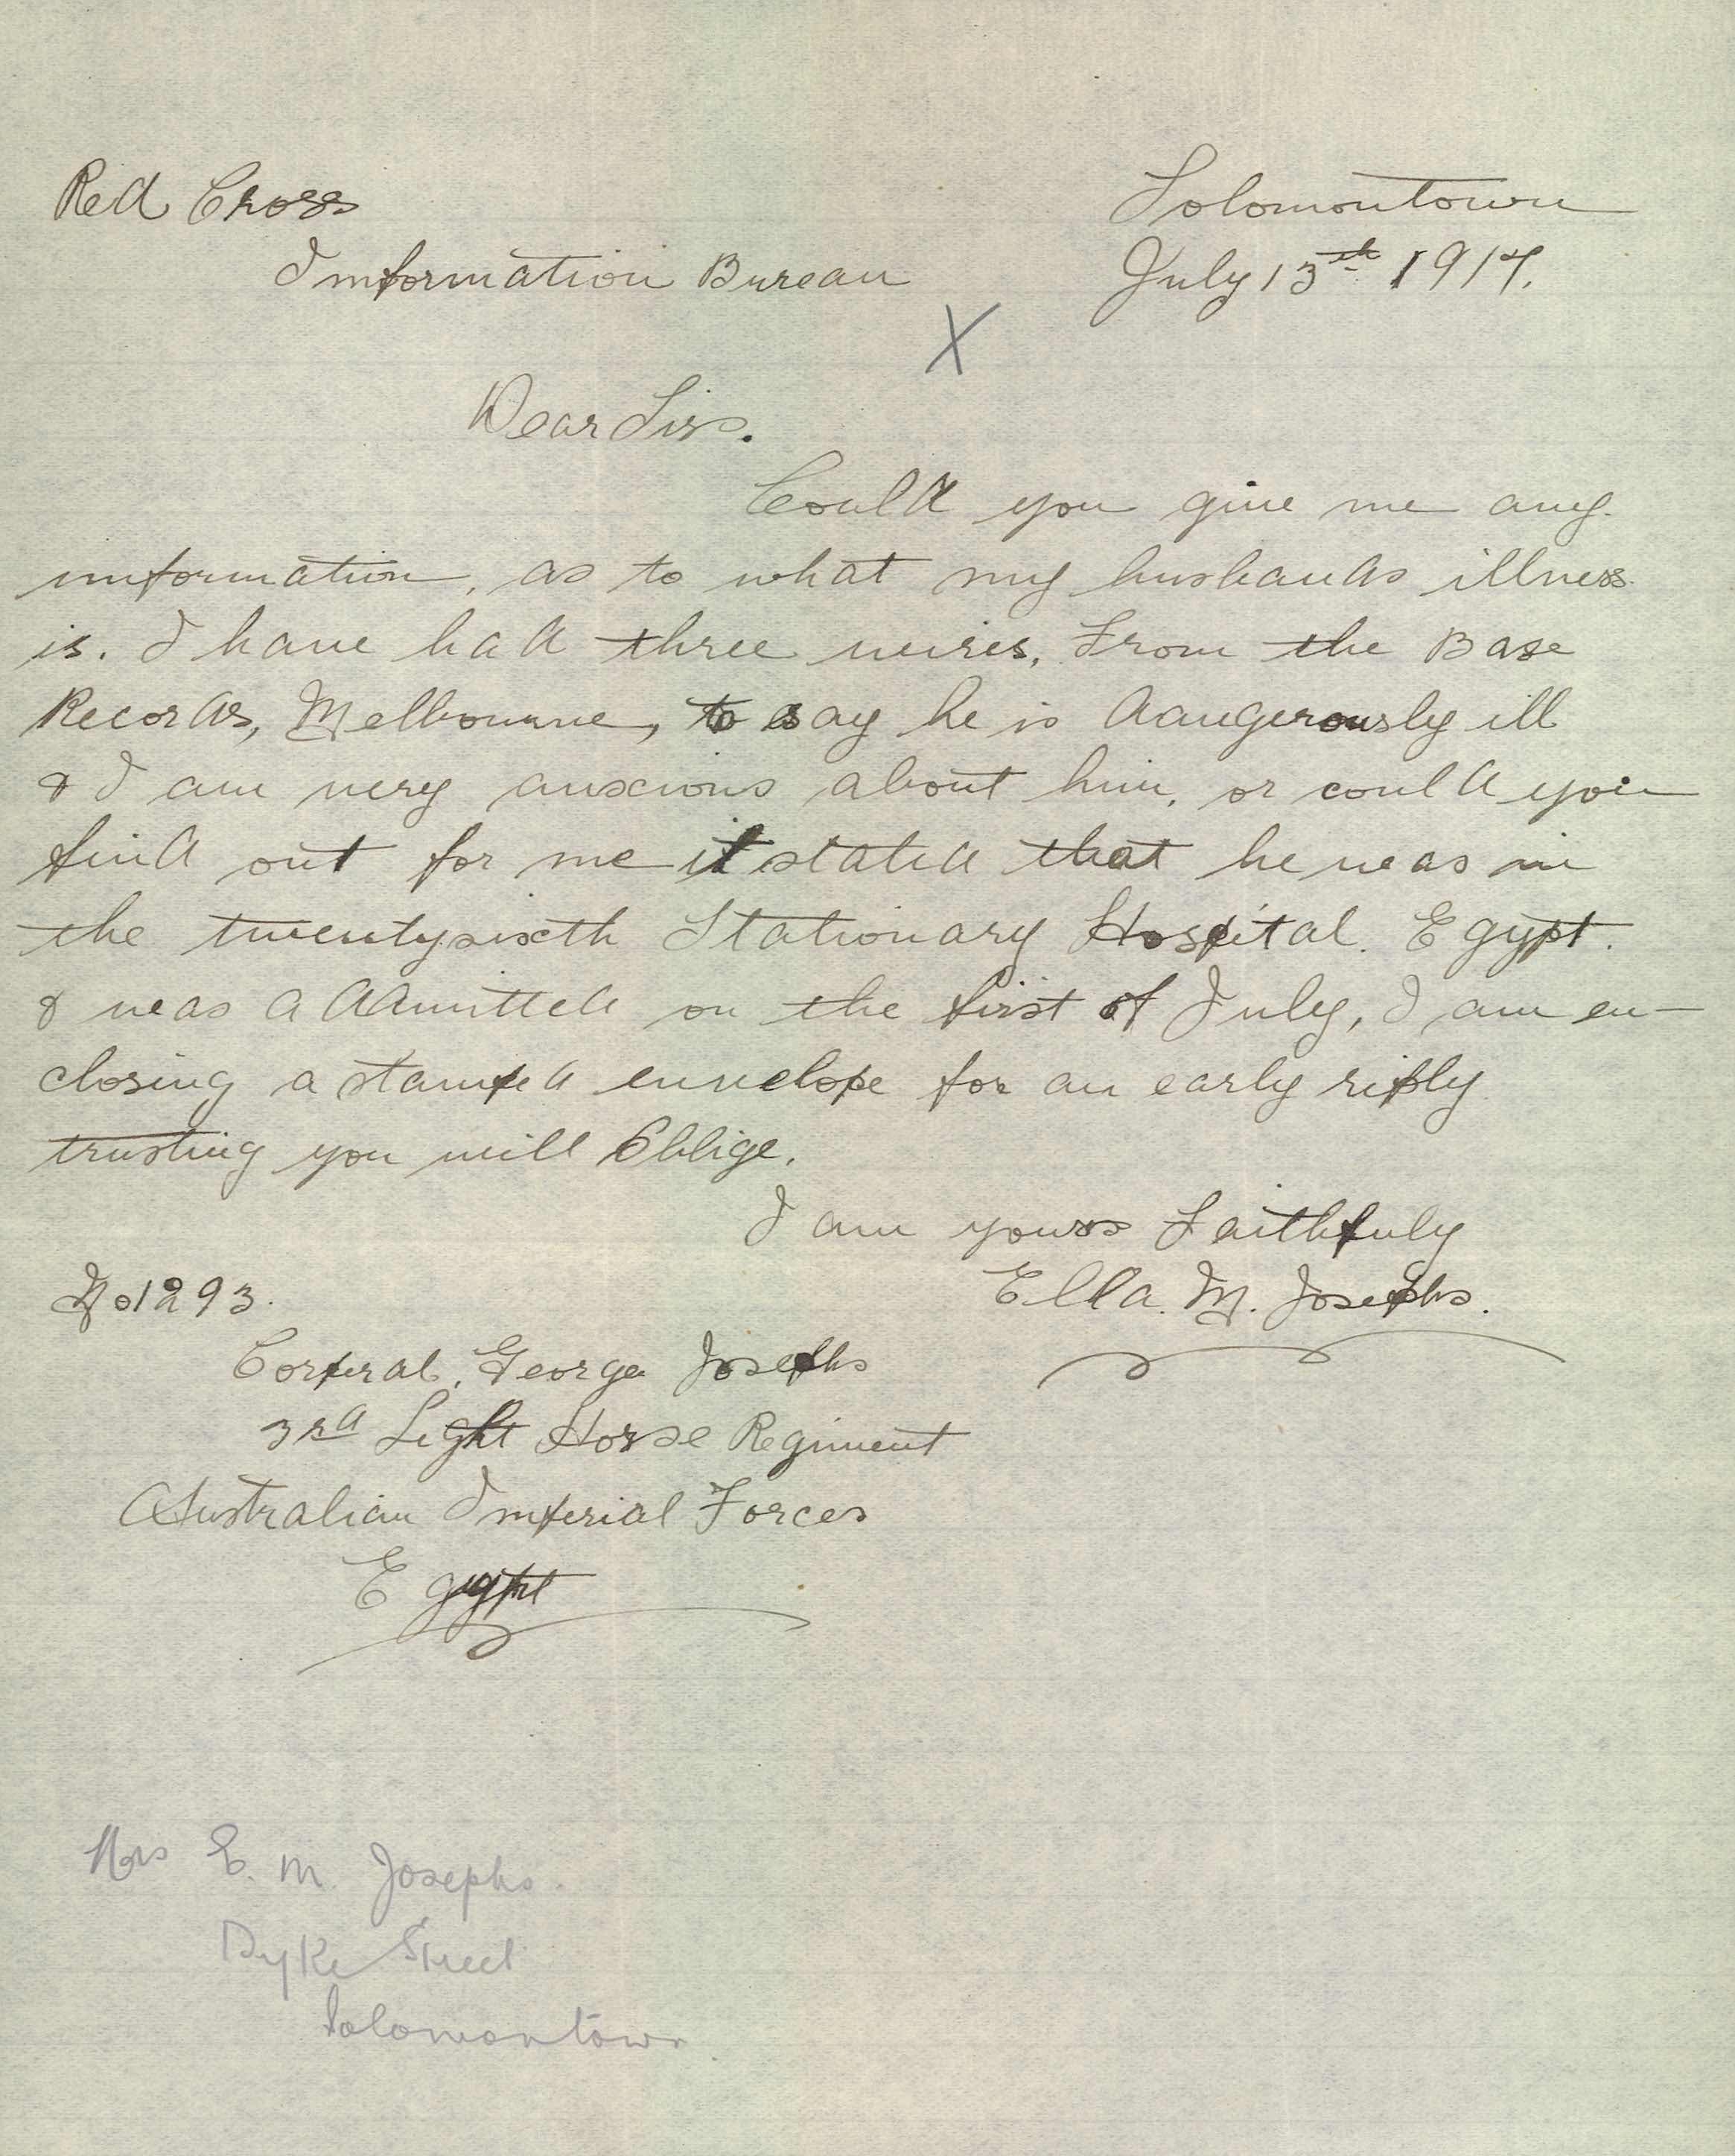 Red Cross
Imformation Bureau
Solomontown
July 13th 1917.
X
Dear Sirs.
Could you give me any
imformation, as to what my husbands illness
is. I have had three wires, From the Base
Records, Melbourne, to say he is dangerously ill
& I am very anxcious about him, or could you
find out for me it stated that he was in
the twentysixth Stationary Hospital. Egypt.
& was addmitted on the first of July, I am en-
closing a stamped envelope for an early reply
trusting you will Oblige.
I am yours Faithfuly
Ella. M. Josephs.
No 1293.
Corperal. George Josephs
3rd Light Horse Regiment
Australian Imperial Forces
Egypt
Mrs E. M. Josephs.
Dyke Street
Solomontown.